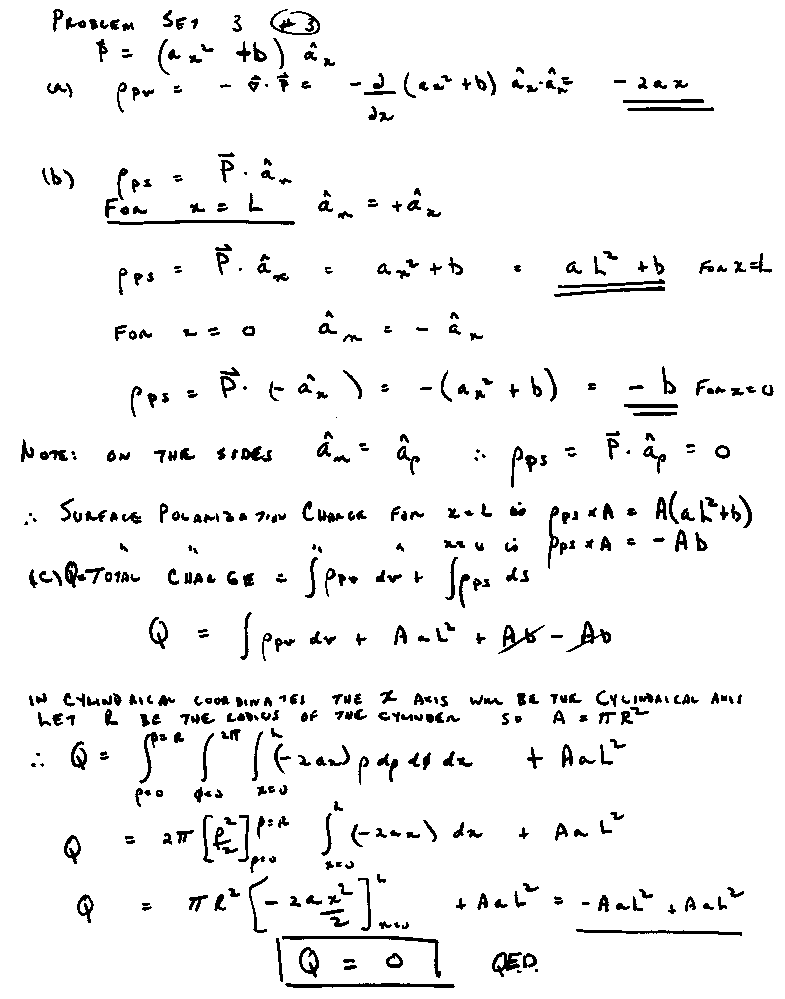 PROBLEM SET 3 #3
P⃗ = (ax² + b) âₓ
(a) ρpv = - ∇⃗·P⃗ = -∂/∂x (ax² + b) âₓ·âₓ = -2ax
(b) ρps = P⃗ · âₙ
FOR x = L âₙ = +âₓ
ρps = P⃗ · âₓ = ax² + b = aL² + b FOR x=L
FOR x = 0 âₙ = - âₓ
ρps = P⃗ · (- âₓ) = -(ax² + b) = - b FOR x=0
NOTE: ON THE SIDES âₙ = âρ ∴ ρps = P⃗ · âρ = 0
∴ SURFACE POLARIZATION CHARGE FOR x=L is ρps x A = A(aL²+b)
" " " " x=0 is ρps x A = - Ab
(c) Q=TOTAL CHARGE = ∫ρpv dv + ∫ρps ds
Q = ∫ρpv dv + AaL² + Ab - Ab
IN CYLINDRICAL COORDINATES THE X AXIS WILL BE THE CYLINDRICAL AXIS
LET R BE THE RADIUS OF THE CYLINDER SO A = πR²
∴ Q = ∫_{ρ=0}^{ρ=R} ∫_{φ=0}^{2π} ∫_{x=0}^{L} (-2ax) ρ dρ dφ dx + AaL²
Q = 2π [ρ²/2]_{ρ=0}^{ρ=R} ∫_{x=0}^{L} (-2ax) dx + AaL²
Q = πR² [-2a x²/2]_{x=0}^{L} + AaL² = -AaL² + AaL²
Q = 0 QED.